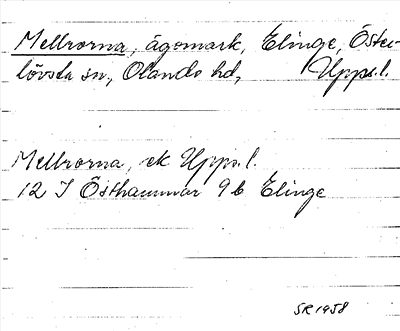 Mellrorna, ägomark, Elinge, Öster-
lövsta sn, Olands hd, Upps.l.
Mellrorna, ek Upps.l.
12 I Östhammar 9b Elinge
SR 1958